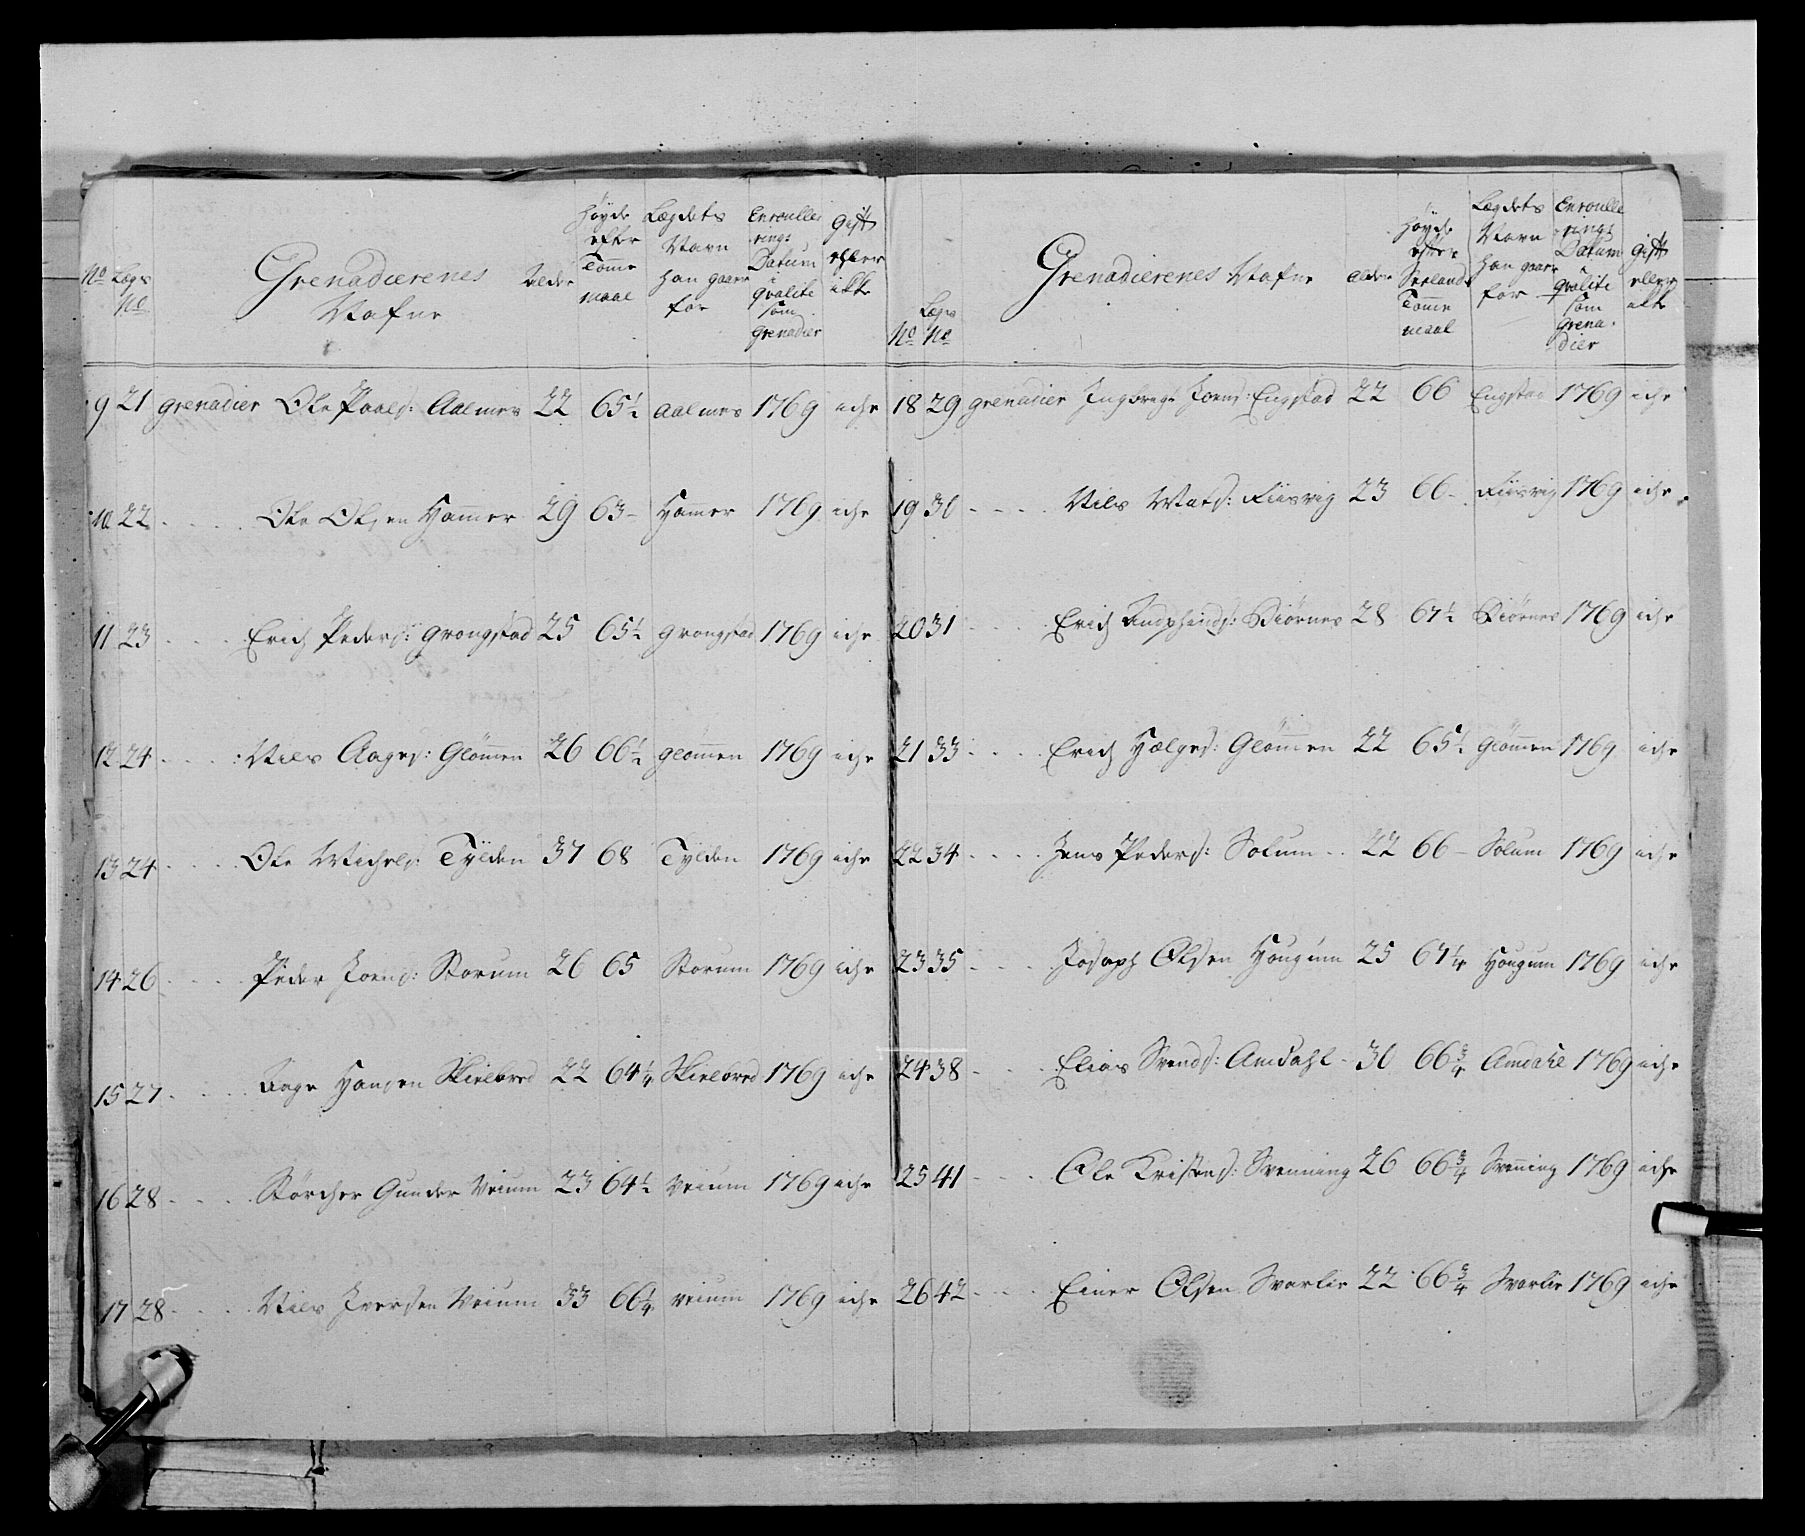 No Lægs No Grenadierenes Nafne Alder Høyde efter Tomme maal Lægdets Navn han gaar for Enroullerings Datum i qvalite som Grenadier Gift eller ikke
9 21 grenadier Ole Paals: Aalmes 22 65½ Aalmes 1769 iche
10 22 - - - - Ole Olsen Hammer 29 63- Hammer 1769 iche
11 23 - - - - Erich Peders: Grongstad 25 65½ Grongstad 1769 iche
12 24 - - - - Niels Aages: Glömen 26 66½ glömen 1769 iche
13 24 - - - - Ole Michels: Tylden 37 68 Tylden 1769 iche
14 26 - - - - Peder Joens: Storum 26 65 Storum 1769 iche
15 27 - - - - Aage Hansen Skielbred 22 64¼ Skielbred 1769 iche
16 28 - - - - Störcher Gunder Veium 23 64½ Veium 1769 iche
17 28 - - - - Niels Iversen Veium 33 66¼ veium 1769 iche
No Lægs No Grenadierenes Nafne alder Høyde efter Seelands Tomme maal Lægdets Navn han gaar for Enroullerings Datum i qvalite som Grenadier Gift eller ikke
18 29 grenadier Ingebrigt Joens: Engstad 22 66 Engstad 1769 iche
19 30 - - - - Niels Mats: Fiisvig 23 66- Fiisvig 1769 iche
20 31 - - - - Erich Biörnes 28 67½ Biörnes 1769 iche
21 33 - - - - Erich Hælges: Glömen 22 65½ Glömen 1769 iche
22 34 - - - - Jens Peders: Solum - - 22 66- Solum 1769 iche
23 35 - - - - Joseph Olsen Hougum 25 67¼ Hougum 1769 iche
24 38 - - - - Elias Svends: Amdahl - 30 66¾ Amdahl 1769 iche
25 41 - - - - Ole Kristens: Svenning 26 66¾ Svening 1769 iche
26 42 - - - - Einer Olsen Svarlie 22 66¾ Svarlie 1769 iche